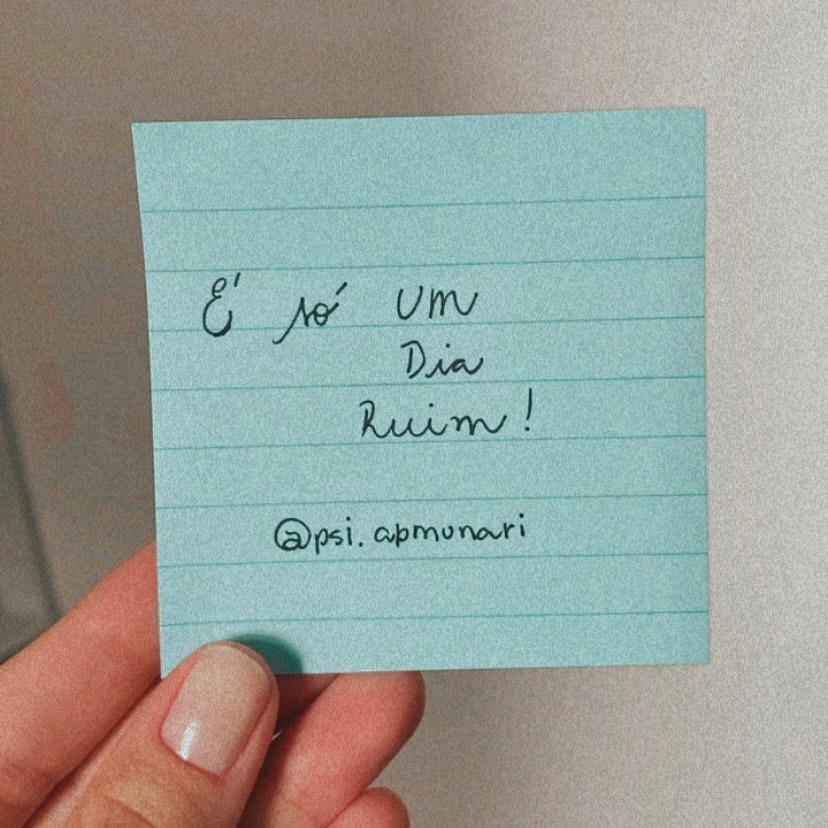 É só um
Dia
Ruim!
@psi.apmunari